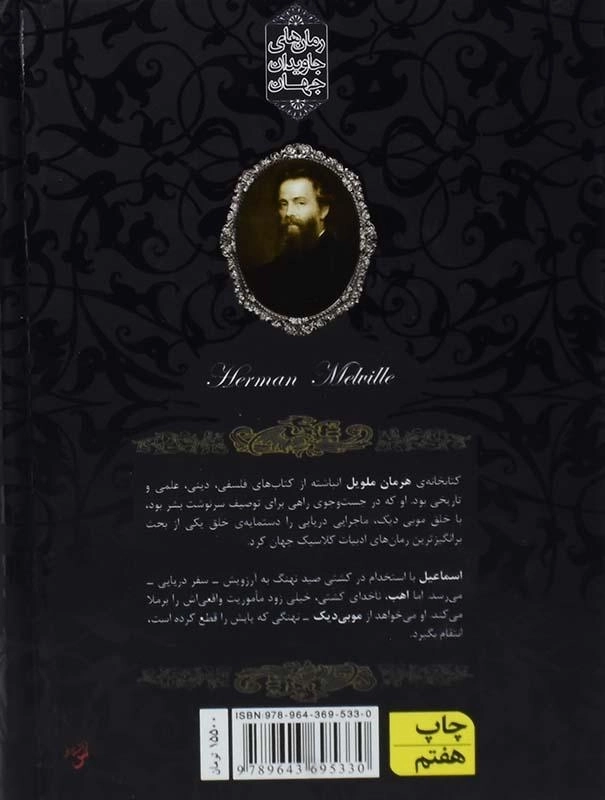 رمان‌های
جاویدان
جهان
Herman Melville
کتابخانه‌ی هرمان ملویل انباشته از کتاب‌های فلسفی، دینی، علمی و
تاریخی بود. او که در جست‌وجوی راهی برای توصیف سرنوشت بشر بود،
با خلق موبی دیک، ماجرایی دریایی را دستمایه‌ی خلق یکی از بحث
برانگیزترین رمان‌های ادبیات کلاسیک جهان کرد.
اسماعیل با استخدام در کشتی صید نهنگ به آرزویش – سفر دریایی –
می‌رسد. اما اهب، ناخدای کشتی، خیلی زود مأموریت واقعی‌اش را برملا
می‌کند. او می‌خواهد از موبی‌دیک – نهنگی که پایش را قطع کرده است،
انتقام بگیرد.
چاپ
هفتم
ISBN:978-964-369-533-0
9 789643 695330
۱۵۵۰۰ تومان